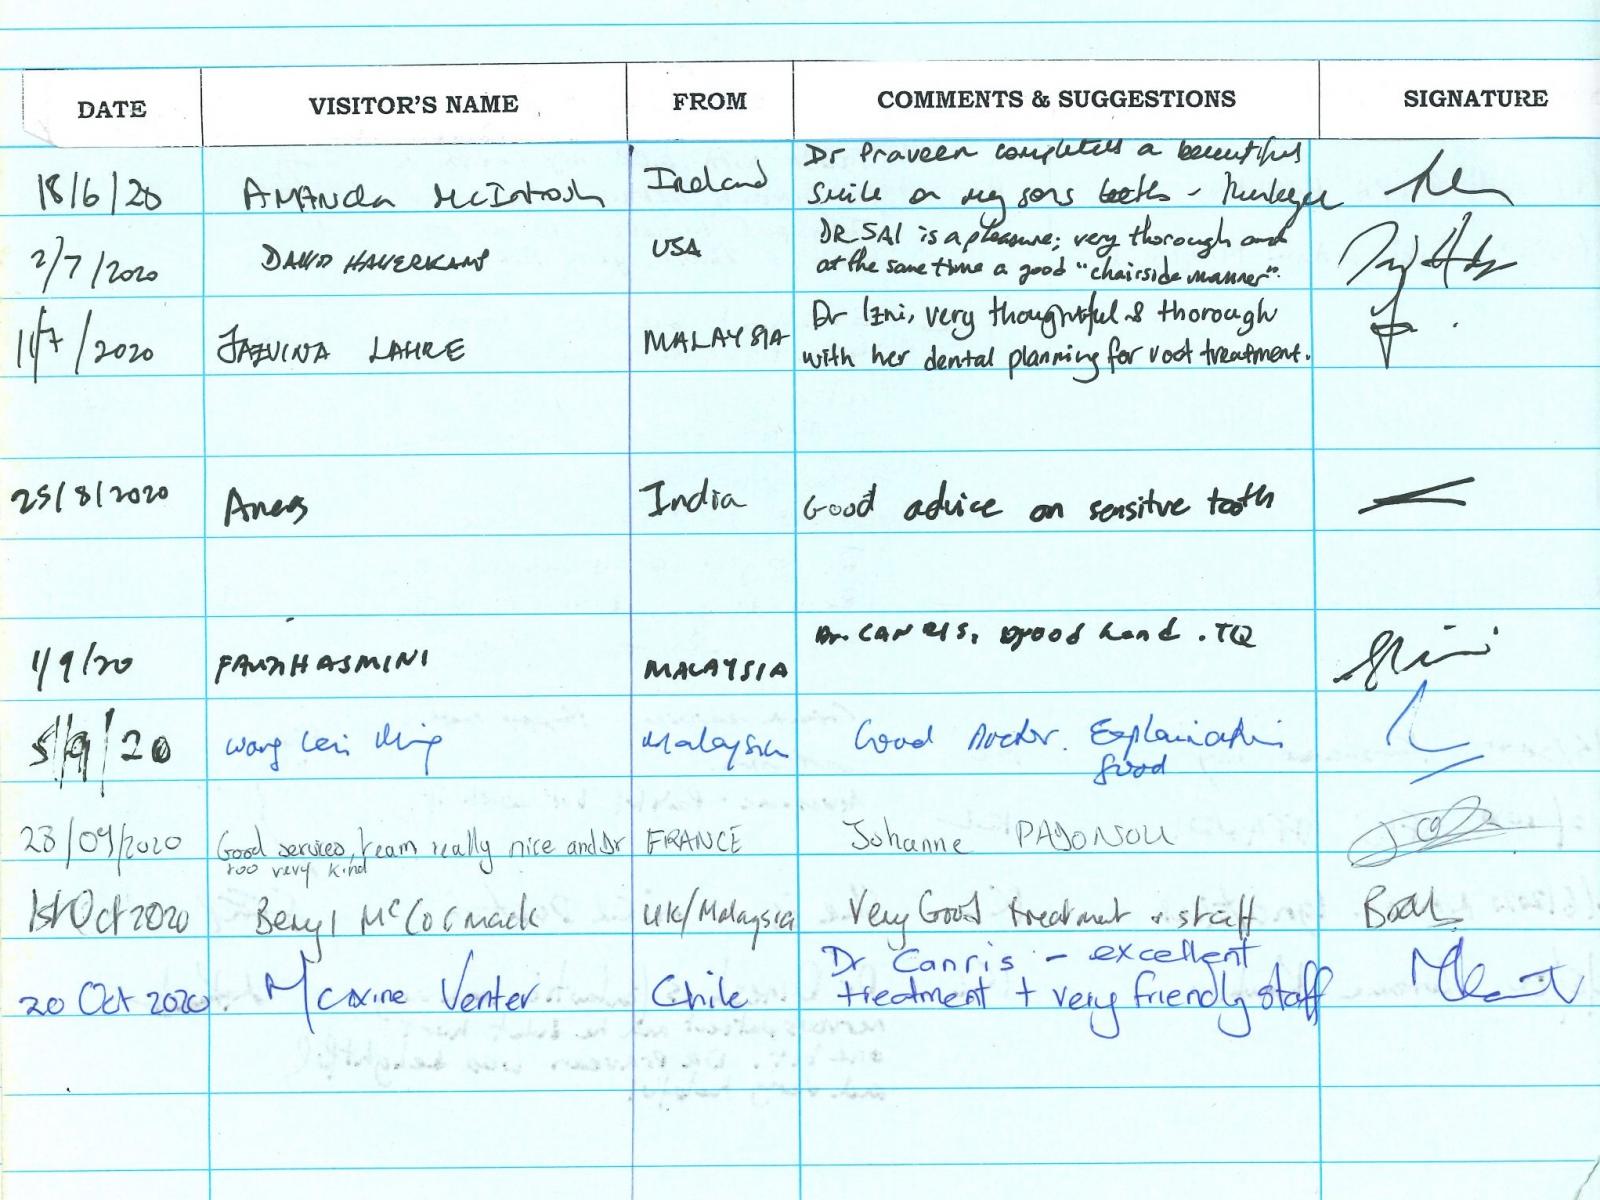 DATE VISITOR'S NAME FROM COMMENTS & SUGGESTIONS SIGNATURE
18/6/20 AMANDA McINTOSH Ireland Dr Praveen completes a beautiful
smile on my sons teeth -
2/7/2020 DAVID HAVERKAMP USA DR SAI is a pleasure; very thorough and
at the same time a good "chairside manner".
11/7/2020 JAZVINA LAHRE MALAYSIA Dr Izni, very thoughtful & thorough
with her dental planning for root treatment.
25/8/2020 Anees India Good advice on sensitve tooth
1/9/20 MALAYSIA Dr. CANRIS, good hand. TQ
5/9/20 Wong Malaysia Good Doctor. Explaination
good
23/09/2020 Good services, team really nice and Dr FRANCE Johanne PADONOU
too very kind
1st Oct 2020 Beryl McCormack UK/Malaysia Very Good treatment & staff
20 Oct 2020. Maxine Venter Chile Dr Canris - excellent
treatment + very friendly staff